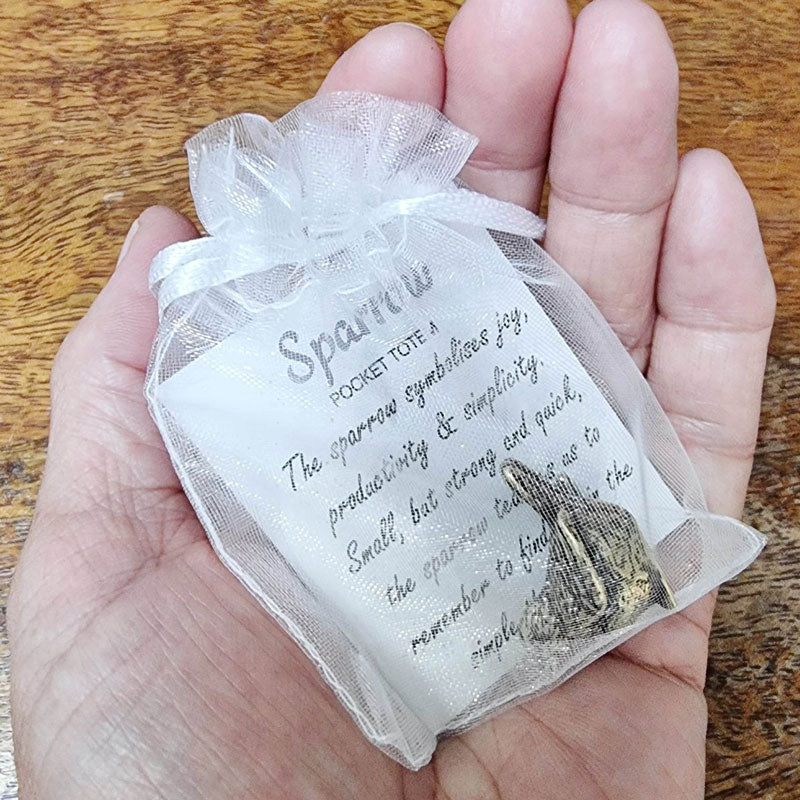 Sparrow
POCKET TOTEM
The sparrow symbolises joy,
productivity & simplicity.
Small, but strong and quick,
the sparrow us to
remember to find in the
simple